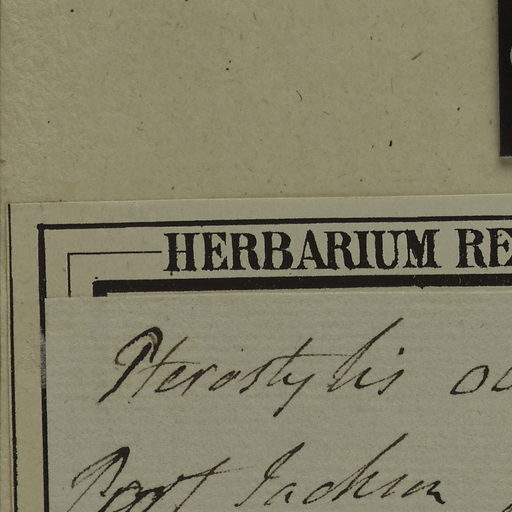 HERBARIUM RE
Pterostylis
Port Jackson